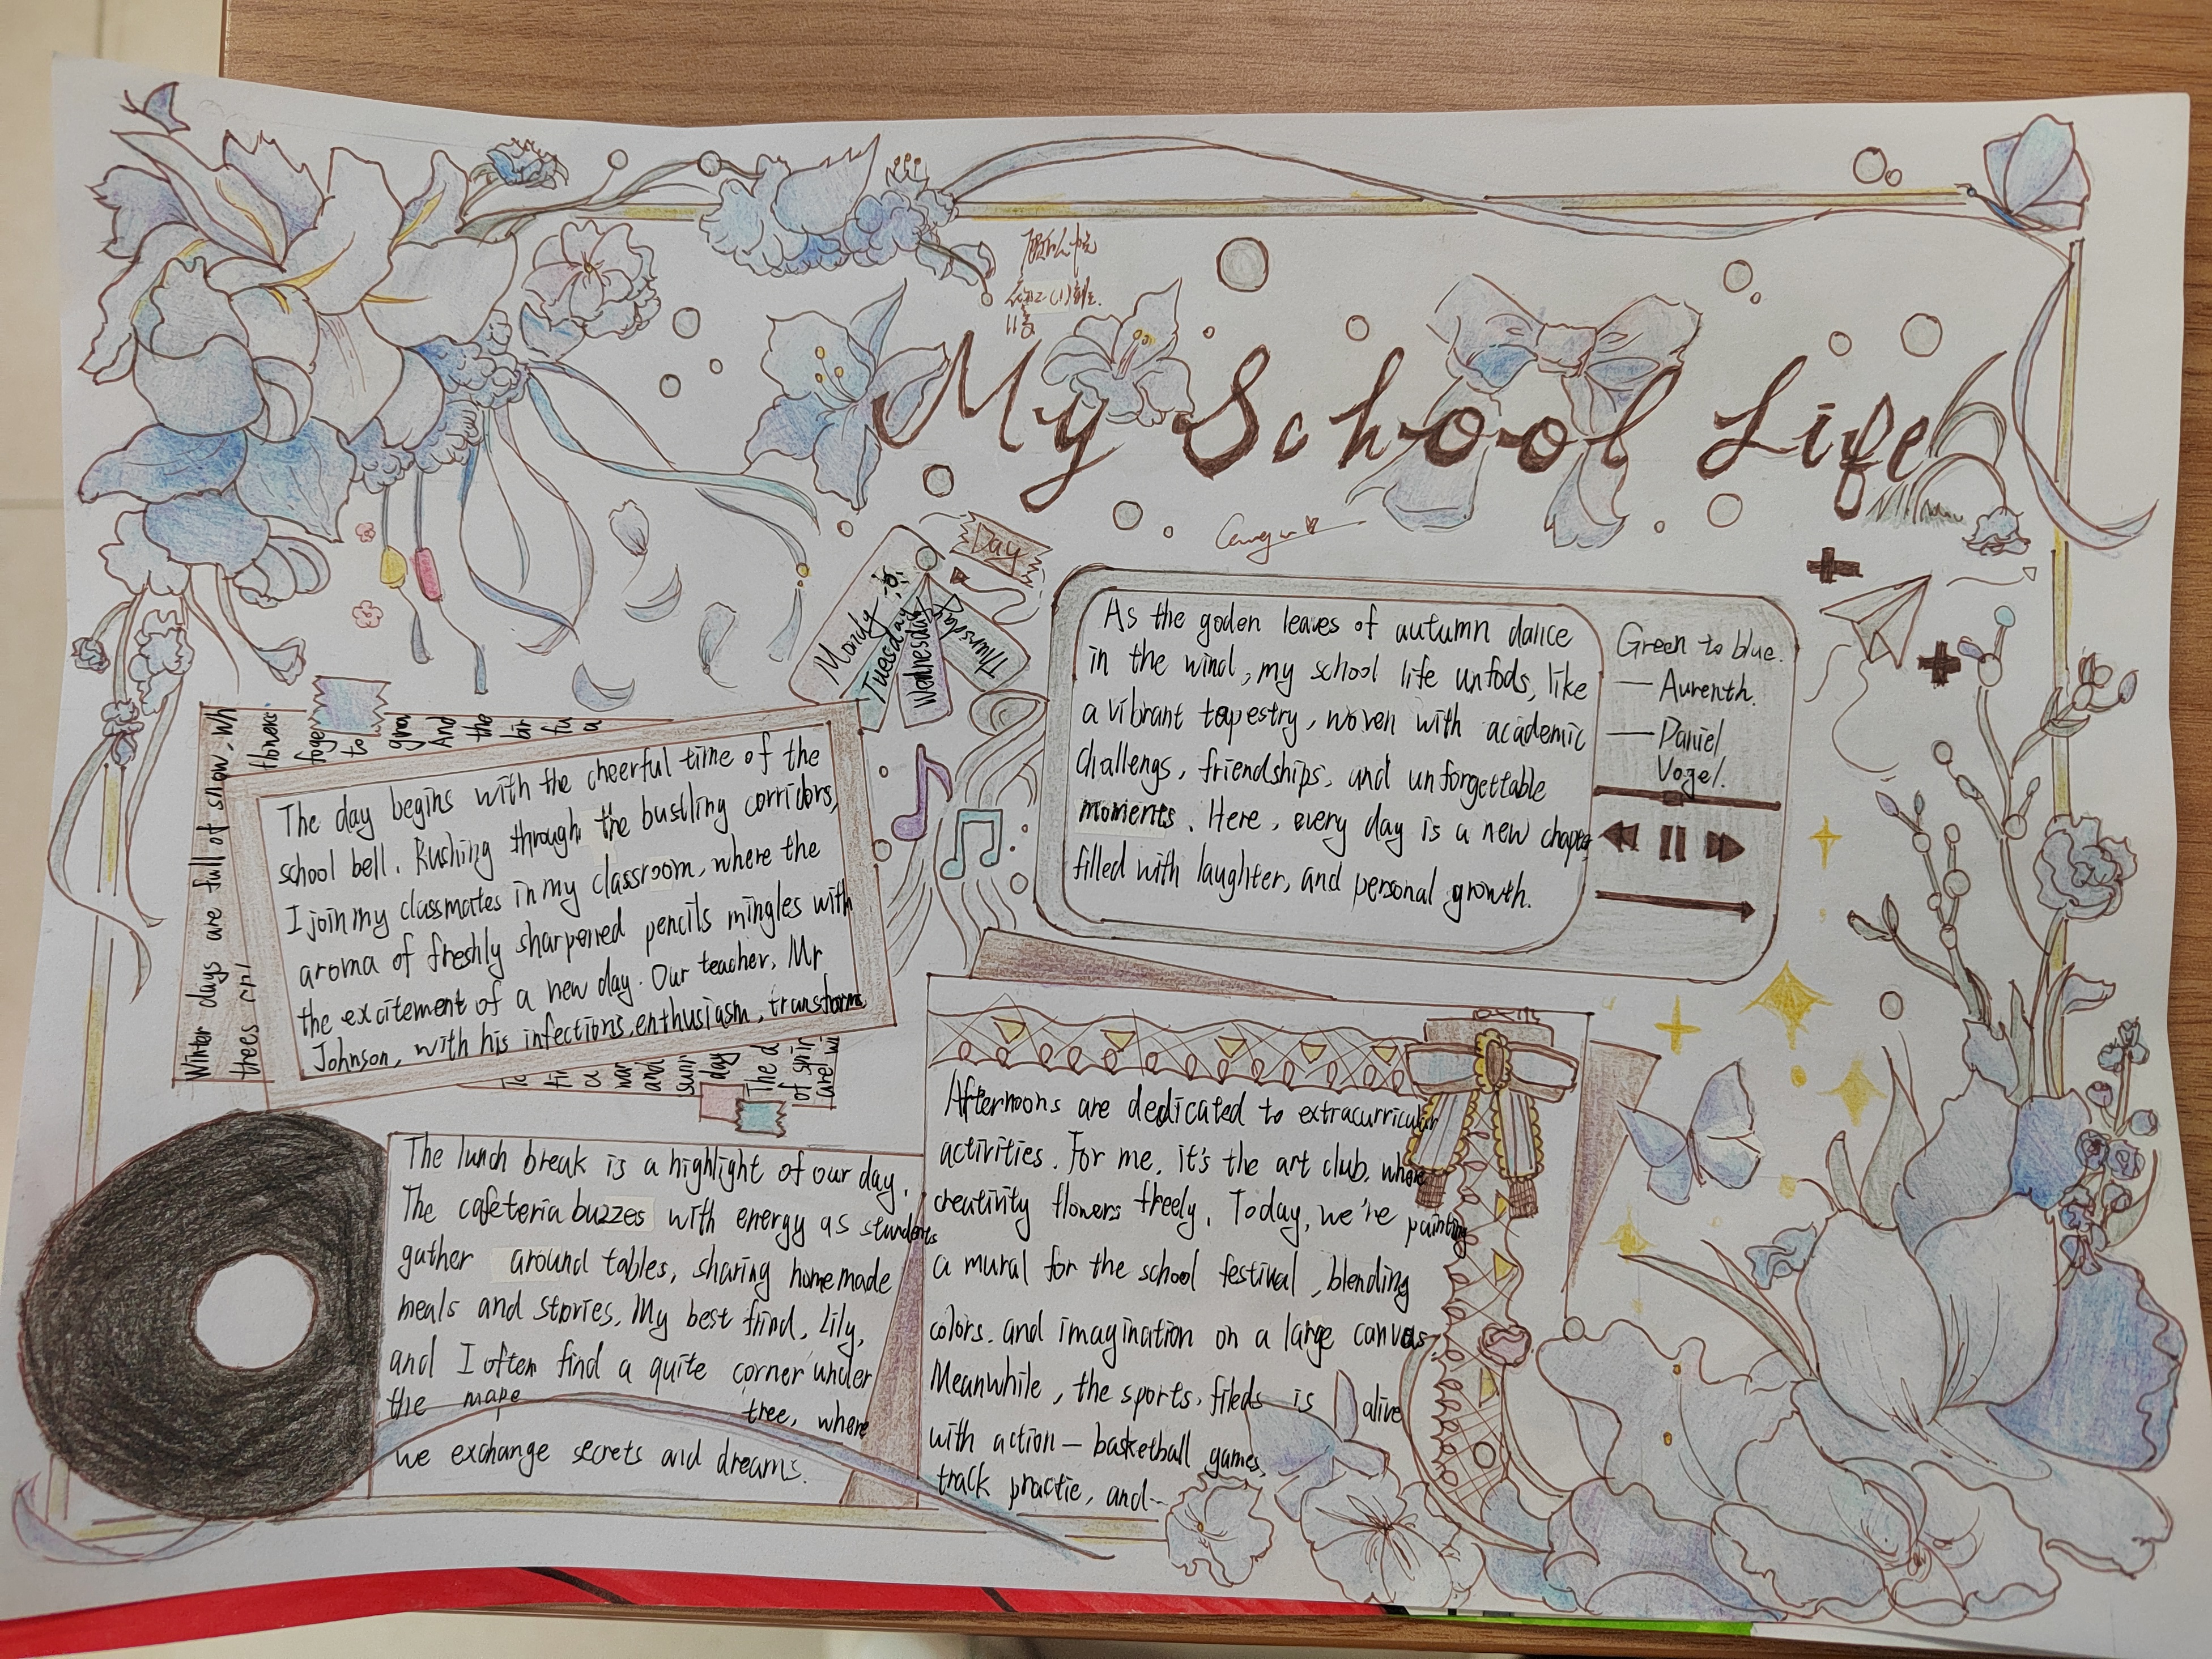 My School Life
Day
Monday
Tuesday
Wednesday
Thursday
As the goden leaves of autumn dance
in the wind, my school life unfods, like
a vibrant tapestry, woven with academic
challengs, friendships, and unforgettable
moments. Here, every day is a new chapter
filled with laughter, and personal growth.
Green to blue.
— Aurenth.
— Daniel
Vogel.
Winter days are full of snow, wh
trees
flowers.
to
grow
And the
The day begins with the cheerful time of the
school bell. Rushing through the bustling corridors,
I join my classmates in my classroom, where the
aroma of freshly sharpened pencils mingles with
the excitement of a new day. Our teacher, Mr
Johnson, with his infections, enthusiasm, transforms
and
sun
day
The d
of sprin
are wi
The lunch break is a highlight of our day.
The cafeteria buzzes with energy as stundents
gather around tables, sharing homemade
meals and stories. My best frind, Lily,
and I often find a quite corner under
the mape tree, where
we exchange secrets and dreams.
Afternoons are dedicated to extracurricular
activities. For me, it's the art club, where
creativity flowers freely. Today, we're painting
a mural for the school festival, blending
colors. and imagination on a large canvas.
Meanwhile, the sports, fileds is alive
with action — basketball games,
track practie, and--